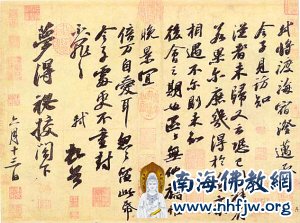 軾將渡海宿澄邁
令子見訪知
從者未歸又云恐已
若果爾庶幾得於
相遇不爾則未知
後會之期也區區無他禱
晚景宜
倍萬自愛耳匆匆留此紙
令子處更不重封
不罪不罪 軾 頓首
夢得秘校閣下
六月十三日
南海佛教網
www.nhfjw.org